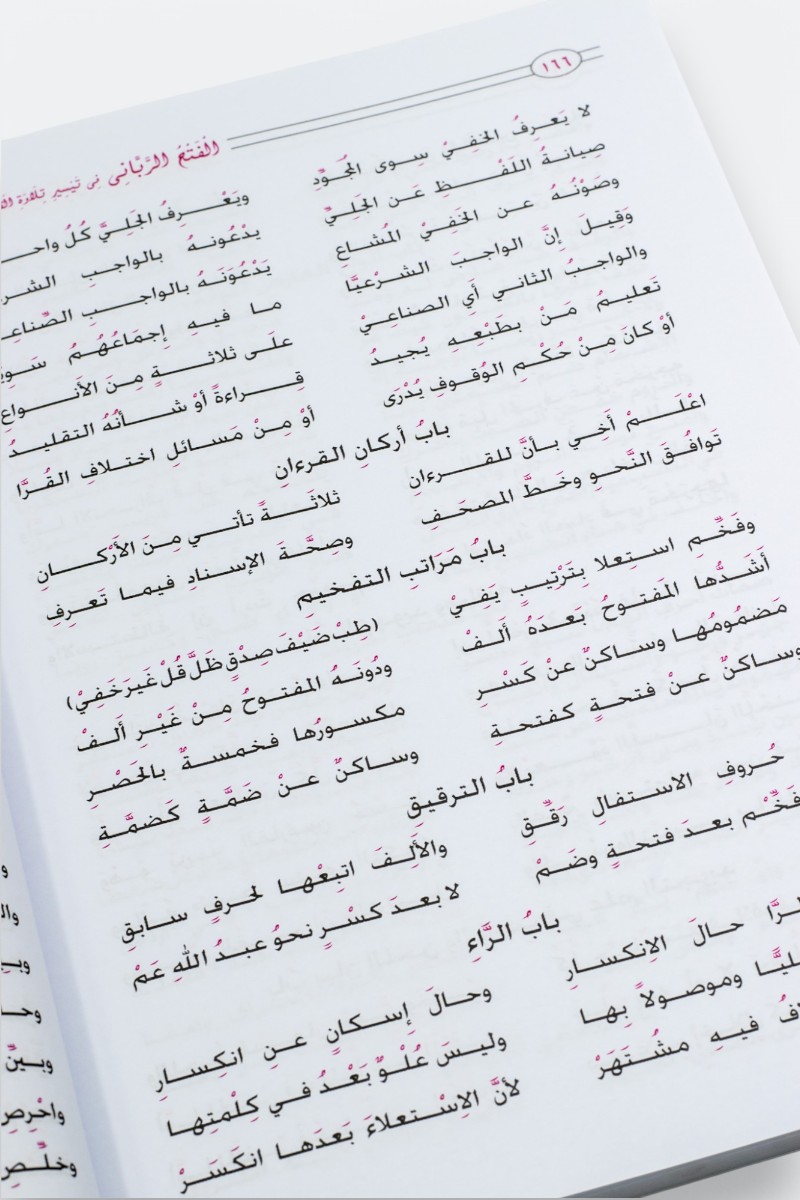 ١٦٦
الْفَتْحُ الرَّبَّانِي فِي تَيْسِيرِ تِلَاوَةِ
لا يَعرِفُ الخفيَّ سِوى المُجَوِّد ويَعْرِفُ الجَلِيَّ كُلُّ
صِيانةُ اللَفْظِ عَنِ الجَلِيِّ يدْعُونهُ بالواجبِ
وصَوْنُهُ عنِ الخَفِيِّ المُشاعِ يَدْعُونَهُ بالواجبِ
وَقِيلَ إنَّ الواجبَ الشرْعيَّا ما فيهِ إجمَاعُهُمْ
والواجبُ الثاني أَيِ الصناعِيْ علَى ثلاثةٍ مِنَ الأنواعِ
تَعليمُ مَنْ بطَبْعِهِ يُجيدُ قراءةً أوْ شأنُهُ التقليدُ
أوْ كانَ مِنْ حُكْمِ الوُقوفِ يُدْرَى أوْ مِنْ مَسائلِ اختلافِ القُرَّا
بابُ أركانِ القرءانِ
اعْلَمْ أَخِي بأنَّ للقرءانِ ثلاثةً تأتي مِنَ الأرْكانِ
تَوافُقَ النَّحوِ وخَطَّ المصحَفِ وصِحَّةَ الإسنادِ فيما تَعرِفِ
بابُ مَرَاتِبِ التفخيمِ
وفَخِّمِ استِعلا بتَرْتِيبٍ يَفِيْ (طِبْ ضَيْفَ صِدْقٍ ظَلَّ قُلْ غَيرَ خَفِيْ)
أَشَدُّها المَفتوحُ بَعدَهُ أَلفْ ودُونَهُ المفتوحُ مِنْ غَيْرِ أَلفْ
مَضمُومُها وساكنٌ عنْ كَسْرِ مكسورُها فخمسةٌ بالحَصْرِ
وساكنٌ عنْ فتحةٍ كفتحةِ وساكنٌ عنْ ضَمَّةٍ كَضمَّةِ
بابُ الترقيقِ
حُروفِ الاستفالِ رَقِّقِ والأَلفَ اتبِعْها لحرفٍ سابقِ
فَخِّمْ بعدَ فتحةٍ وضَمْ لا بعدَ كسْرٍ نحوُ عبدُ اللهِ عَمْ
بابُ الرَّاءِ
حالَ الاِنكسارِ وحالَ إسكانٍ عنِ انكِسارِ
وموصولاً بِها وليسَ عُلْوٌ بَعْدُ في كِلْمتِها
فيهِ مشْتَهَرْ لأنَّ الاِسْتعلاءَ بَعدَها انكَسَرْ
وبيِّنْ
واحْرِصْ